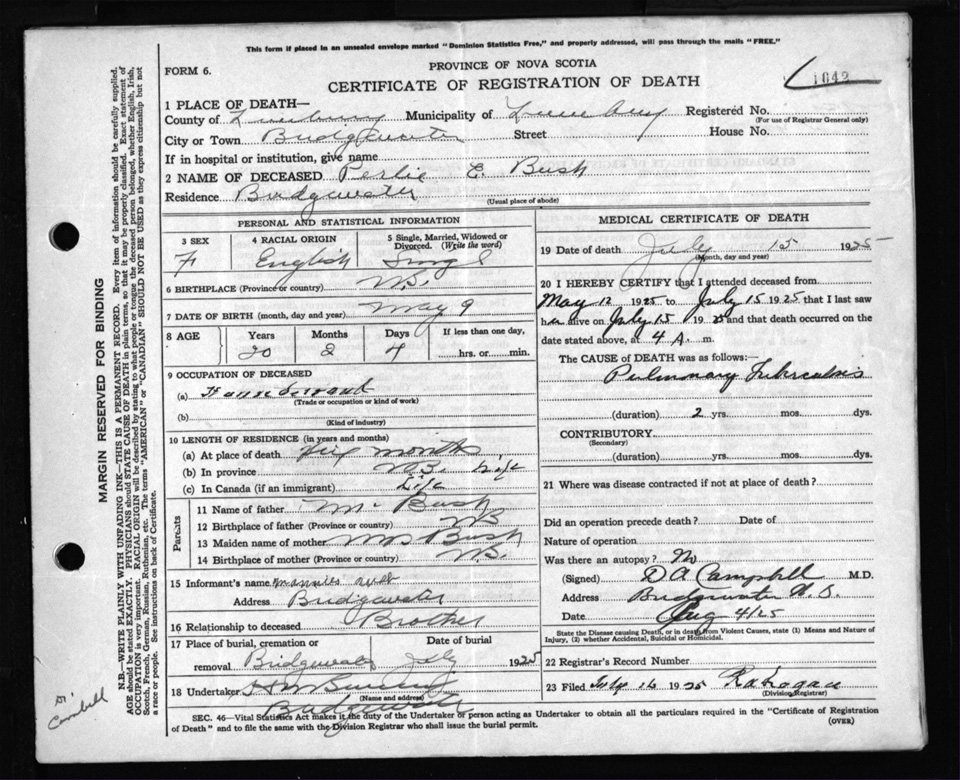 This form if placed in an unsealed envelope marked "Dominion Statistics Free," and properly addressed, will pass through the mails "FREE."
FORM 6.
PROVINCE OF NOVA SCOTIA
CERTIFICATE OF REGISTRATION OF DEATH
1642
1 PLACE OF DEATH—
County of Lunenburg Municipality of Lunenburg Registered No.
(For use of Registrar General only)
City or Town Bridgewater Street House No.
If in hospital or institution, give name
2 NAME OF DECEASED Perlie E. Bush
Residence Bridgewater
(Usual place of abode)
PERSONAL AND STATISTICAL INFORMATION
3 SEX F
4 RACIAL ORIGIN English
5 Single, Married, Widowed or Divorced. (Write the word) Singel
6 BIRTHPLACE (Province or country)
7 DATE OF BIRTH (month, day and year) May 9
8 AGE
Years Months Days If less than one day,
20 2 4 hrs. or min.
9 OCCUPATION OF DECEASED
(a)
(Trade or occupation or kind of work)
(b)
(Kind of industry)
10 LENGTH OF RESIDENCE (in years and months)
(a) At place of death months
(b) In province Life
(c) In Canada (if an immigrant) Life
Parents
11 Name of father Bush
12 Birthplace of father (Province or country)
13 Maiden name of mother Mrs Bush
14 Birthplace of mother (Province or country)
15 Informant's name
Address Bridgewater
16 Relationship to deceased Brother
17 Place of burial, cremation or removal Bridgewater
Date of burial July 1925
18 Undertaker
(Name and address)
Bridgewater
MEDICAL CERTIFICATE OF DEATH
19 Date of death July 15 1925
(Month, day and year)
20 I HEREBY CERTIFY that I attended deceased from
May 12 1925 to July 15 1925 that I last saw
her alive on July 15 1925 and that death occurred on the
date stated above, at 4 A. m.
The CAUSE OF DEATH was as follows:—
Pulmonary Tuberculosis
(duration) 2 yrs. mos. dys.
CONTRIBUTORY
(Secondary)
(duration) yrs. mos. dys.
21 Where was disease contracted if not at place of death?
Did an operation precede death? Date of
Nature of operation
Was there an autopsy? No
(Signed) D A Campbell M.D.
Address Bridgewater N.S.
Date Aug 4/25
State the Disease causing Death, or in death from Violent Causes, state (1) Means and Nature of Injury, (2) whether Accidental, Suicidal or Homicidal.
22 Registrar's Record Number
23 Filed July 16 1925
(Division Registrar)
SEC. 46—Vital Statistics Act makes it the duty of the Undertaker or person acting as Undertaker to obtain all the particulars required in the "Certificate of Registration
of Death" and to file the same with the Division Registrar who shall issue the burial permit.
(OVER)
MARGIN RESERVED FOR BINDING
N.B.—WRITE PLAINLY WITH UNFADING INK—THIS IS A PERMANENT RECORD. Every item of information should be carefully supplied.
AGE should be stated EXACTLY. PHYSICIANS should STATE CAUSE OF DEATH in plain terms, so that it may be properly classified. Exact statement of
OCCUPATION is very important. RACIAL ORIGIN will be described by stating to what people or tongue the deceased person belonged, whether English, Irish,
Scotch, French, German, Russian, Ruthenian, etc. The terms "AMERICAN" or "CANADIAN" SHOULD NOT BE USED as they express citizenship but not
a race or people. See instructions on back of Certificate.
Dr Campbell